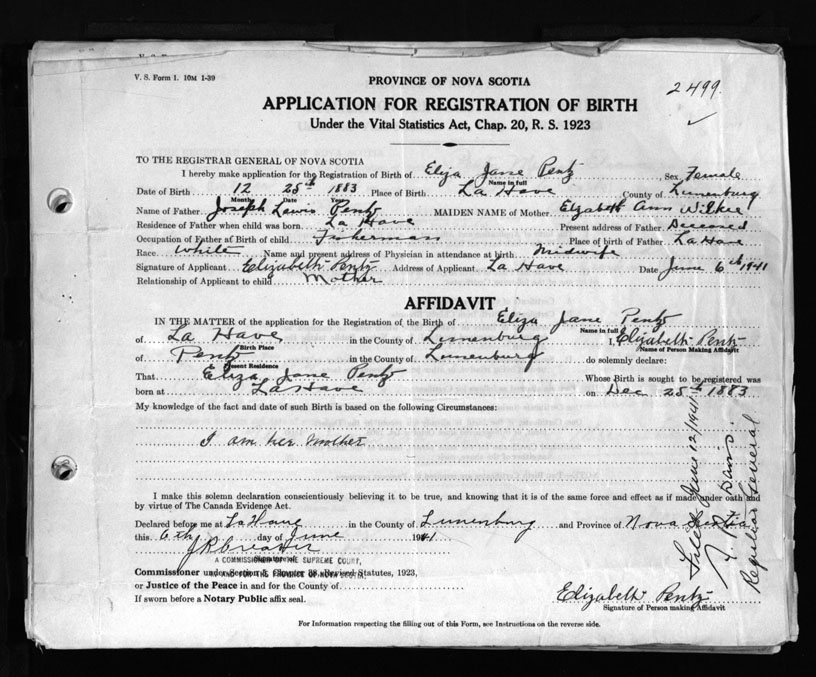 V. S. Form 1. 10M 1-39
2499
PROVINCE OF NOVA SCOTIA
APPLICATION FOR REGISTRATION OF BIRTH
Under the Vital Statistics Act, Chap. 20, R. S. 1923
TO THE REGISTRAR GENERAL OF NOVA SCOTIA
I hereby make application for the Registration of Birth of Eliza Jane Pentz, Sex Female
Name in full
Date of Birth 12 25th 1883 Place of Birth La Have County of Lunenburg
Month Date Year
Name of Father Joseph Lewis Pentz MAIDEN NAME of Mother Elzabeth Ann Wilkie
Residence of Father when child was born La Have Present address of Father Deceased
Occupation of Father at Birth of child Fisherman Place of birth of Father La Have
Race White Name and present address of Physician in attendance at birth Midwife
Signature of Applicant Elizabeth Pentz Address of Applicant La Have Date June 6th 1941
Relationship of Applicant to child Mother
AFFIDAVIT
IN THE MATTER of the application for the Registration of the Birth of Eliza Jane Pentz
Name in full
of La Have in the County of Lunenburg I, Elizabeth Pentz
Birth Place Name of Person Making Affidavit
of Pentz in the County of Lunenburg do solemnly declare:
Present Residence
That Eliza Jane Pentz Whose Birth is sought to be registered was
born at La Have on Dec 25th 1883
My knowledge of the fact and date of such Birth is based on the following Circumstances:
I am her mother
I make this solemn declaration conscientiously believing it to be true, and knowing that it is of the same force and effect as if made under oath and
by virtue of The Canada Evidence Act.
Declared before me at La Have in the County of Lunenburg and Province of Nova Scotia
this 6th day of June 1941
A COMMISSIONER OF THE SUPREME COURT,
IN AND FOR THE PROVINCE OF NOVA SCOTIA
Commissioner under Section 5, Chapter 38, Revised Statutes, 1923,
or Justice of the Peace in and for the County of
If sworn before a Notary Public affix seal.
Elizabeth Pentz
Signature of Person making Affidavit
For Information respecting the filling out of this Form, see Instructions on the reverse side.
Filed June 12/1941
Davis
Registrar General